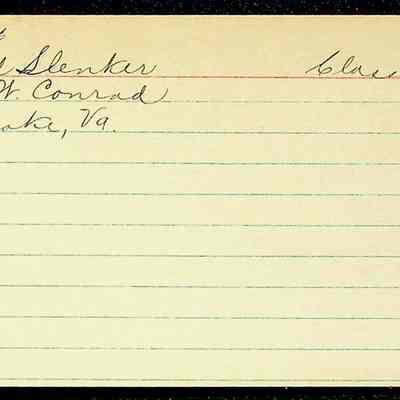 Slenker Class
W. Conrad
oke, Va.